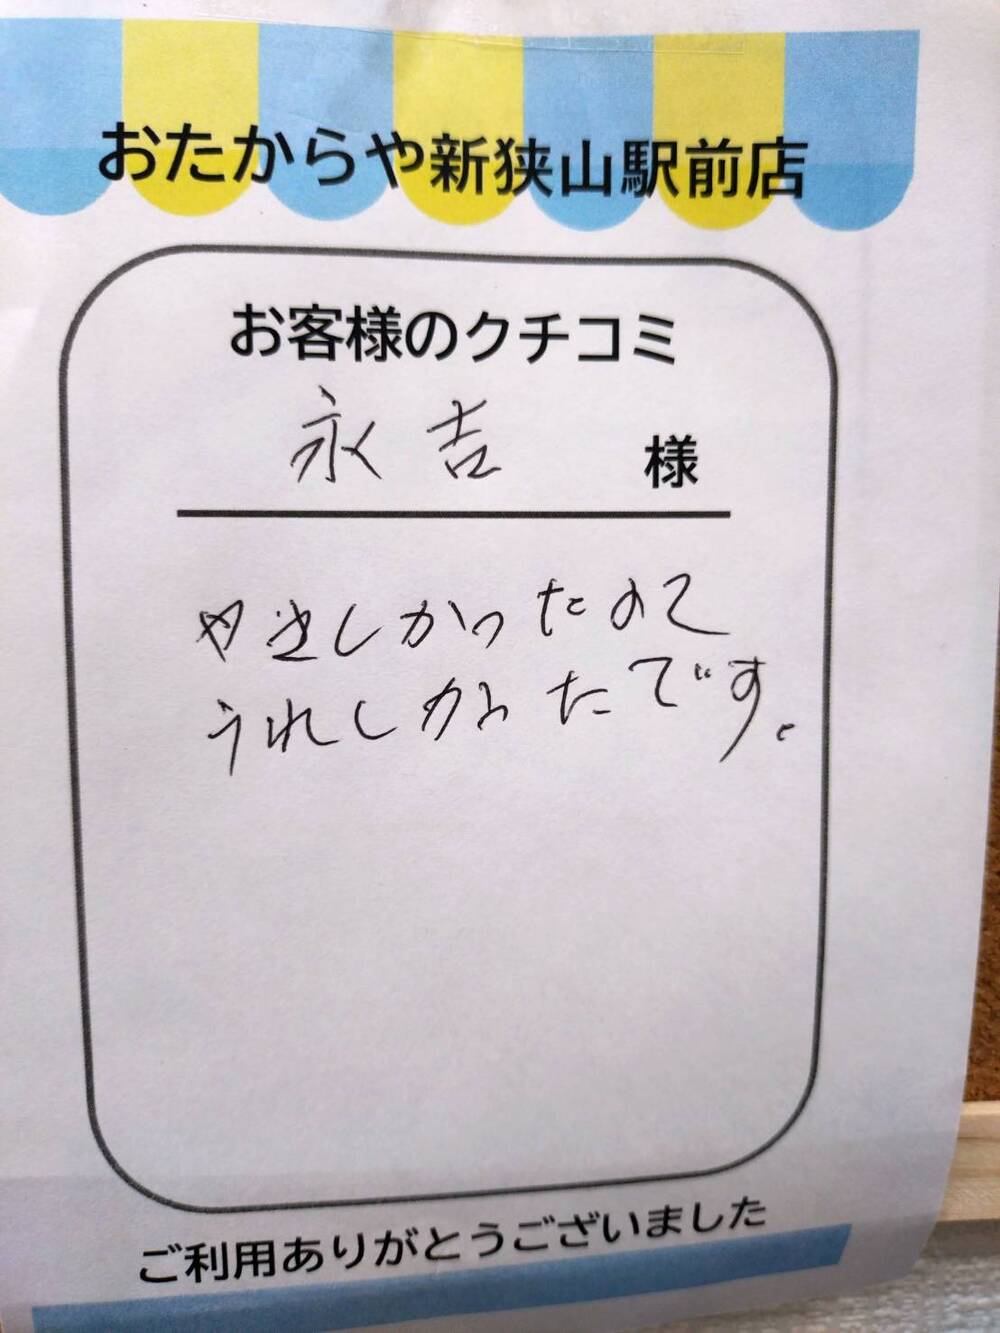 おたからや新狭山駅前店
お客様のクチコミ
永吉 様
やさしかったのて
うれしかったです。
ご利用ありがとうございました